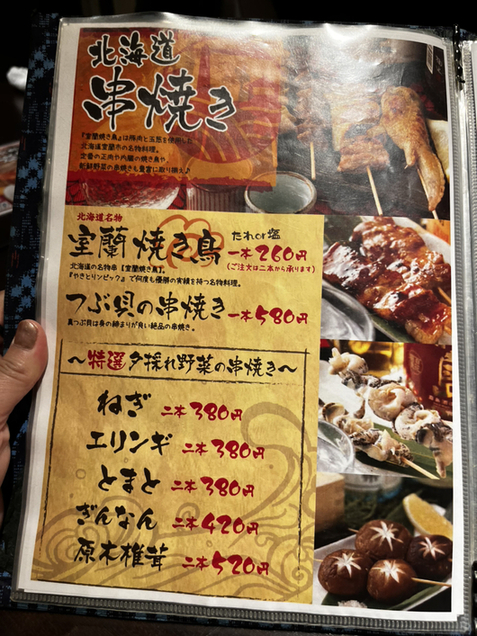 北海道
串焼き
『室蘭焼き鳥』は豚肉と玉葱を使用した
北海道室蘭市の名物料理。
定番の正肉や内臓の焼き鳥や、
新鮮野菜の串焼きも豊富に取り揃え♪
北海道名物
室蘭焼き鳥 たれor塩 一本260円
(ご注文は二本から承ります)
北海道の名物串【室蘭焼き鳥】。
『やきとりンピック』で何度も優勝の実績を持つ名物料理。
つぶ貝の串焼き 一本580円
真つぶ貝は身の締まりが良い絶品の串焼き。
〜特選夕採れ野菜の串焼き〜
ねぎ 二本380円
エリンギ 二本380円
とまと 二本380円
ぎんなん 二本420円
原木椎茸 二本520円